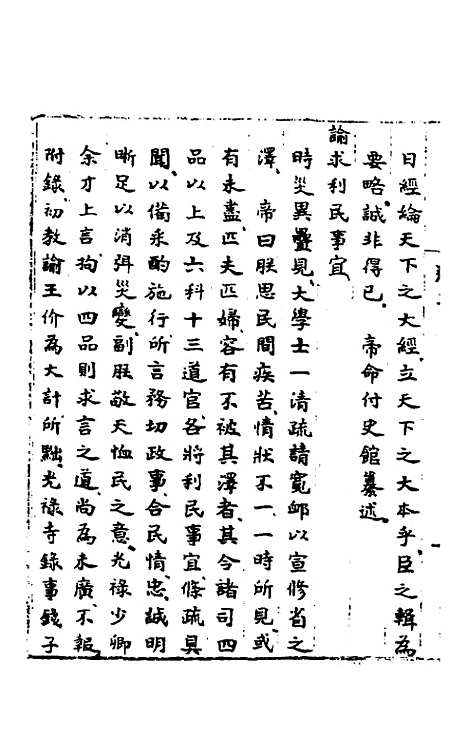 曰經綸天下之大經立天下之大本乎臣之輯為
要略誠非得已　帝命付史館纂述
諭求利民事宜
時災異疊見大學士一清疏請寬卹以宣修省之
澤　帝曰朕思民間疾苦情狀不一一時所見或
有未盡匹夫匹婦容有不被其澤者其令諸司四
品以上及六科十三道官各將利民事宜條疏具
聞以備采酌施行所言務切政事合民情忠誠明
晰足以消弭災變副朕敬天恤民之意光祿少卿
余才上言拘以四品則求言之道尚為未廣不報
附錄初教諭王价為大計所黜光祿寺錄事錢子